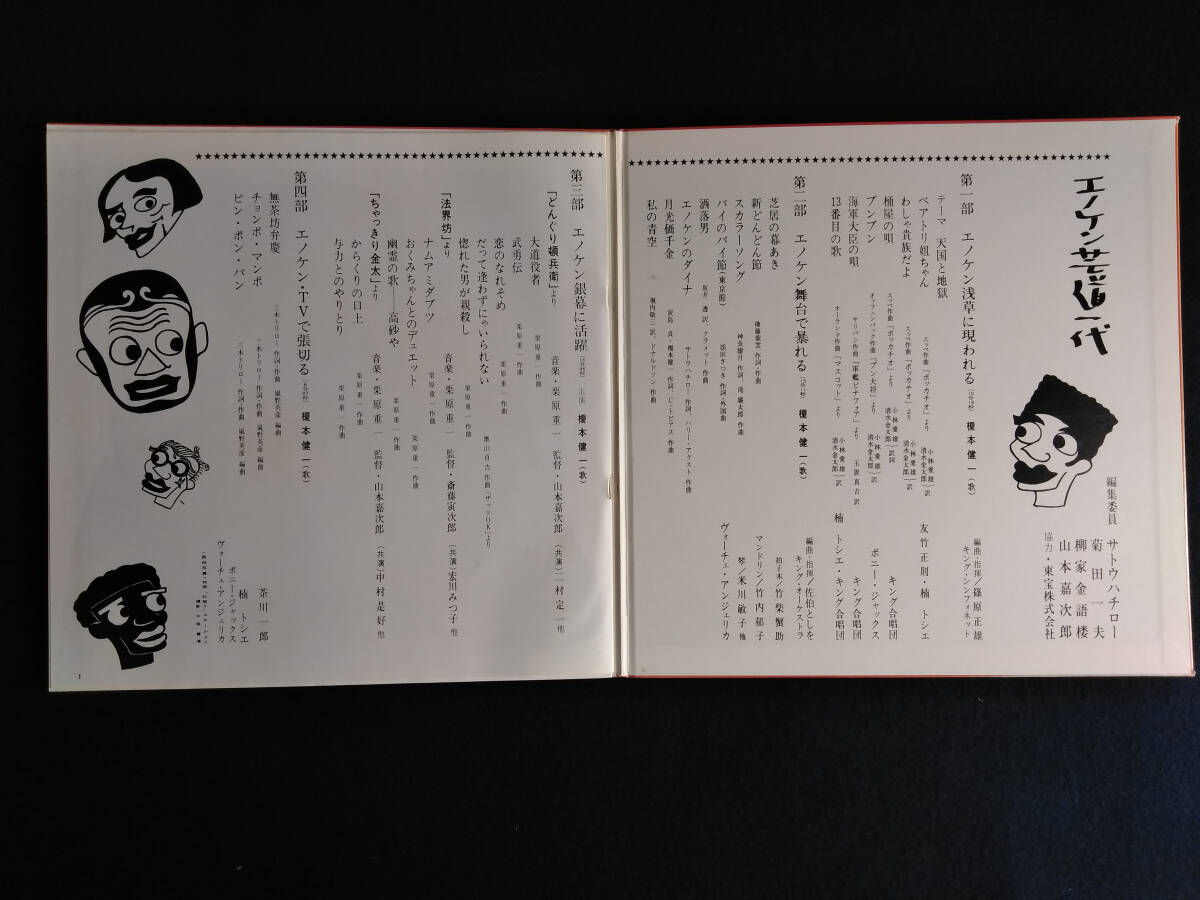 エノケン芸道一代
編集委員
サトウハチロー
菊田一夫
柳家金語楼
山本嘉次郎
協力・東宝株式会社
第一部 エノケン浅草に現われる 榎本健一(歌)
編曲・指揮/篠原正雄
キング・シンフォネット
テーマ 天国と地獄
ベアトリ姐ちゃん
スッペ作曲「ボッカチオ」より
小林愛雄
清水金太郎 訳
友竹正則・楠トシエ
わしゃ貴族だよ
スッペ作曲「ボッカチオ」より
小林愛雄
清水金太郎 訳
桶屋の唄
スッペ作曲「ボッカチオ」より
小林愛雄
清水金太郎 訳詞
キング合唱団
ブンブン
オッフェンバック作曲「ブン大将」より
小林愛雄
清水金太郎 訳
ボニー・ジャックス
海軍大臣の唄
サリバン作曲「軍艦ピナフォア」より
玉置真吉訳
キング合唱団
13番目の歌
オーランド作曲「マスコット」より
小林愛雄
清水金太郎 訳
楠トシエ・キング合唱団
第二部 エノケン舞台で暴れる 榎本健一(歌)
編曲・指揮/佐伯としを
キング・オーケストラ
芝居の幕あき
拍子木/竹柴蟹助
新どんどん節
後藤紫雲 作詞・作曲
マンドリン/竹内郁子
スカラーソング
神長瞭月 作詞、滝廉太郎 作曲
パイのパイ節(東京節)
添田さつき 作詞・外国曲
琴/米川敏子 他
洒落男
坂井透訳、クラメット 作曲
ヴォーチェ・アンジェリカ
エノケンのダイナ
サトウハチロー 作詞、ハリー・アクスト 作曲
月光価千金
波島貞・榎本健一 作詞、C・トビアス 作曲
私の青空
堀内敬三 訳、ドナルドソン 作曲
第三部 エノケン銀幕に活躍 主演 榎本健一(歌)
「どんぐり頓兵衛」より
音楽・栗原重一 監督・山本嘉次郎 (共演)二村定一他
大道役者
栗原重一 作曲
武勇伝
栗原重一 作曲
恋のなれそめ
栗原重一 作曲
だって逢わずにゃいられない
奥山貞吉 作曲「ザッツOK」より
惚れた男が親殺し
「法界坊」より
音楽・栗原重一 監督・斎藤寅次郎 (共演)宏川みつ子 他
ナムアミダブツ
栗原重一 作曲
おくみちゃんとのデュエット
栗原重一 作曲
幽霊の歌――高砂や
栗原重一 作曲
「ちゃっきり金太」より
音楽・栗原重一 監督・山本嘉次郎 (共演)中村是好 他
からくりの口上
栗原重一 作曲
与力とのやりとり
栗原重一 作曲
第四部 エノケン・TVで張切る 榎本健一(歌)
無茶坊弁慶
三木トリロー 作詞・作曲 嵐野英彦 編曲
茶川一郎
チョンボ・マンボ
三木トリロー 作詞・作曲 嵐野英彦 編曲
楠トシエ
ボニー・ジャックス
ピン・ポン・パン
三木トリロー 作詞・作曲 嵐野英彦 編曲
ヴォーチェ・アンジェリカ
1